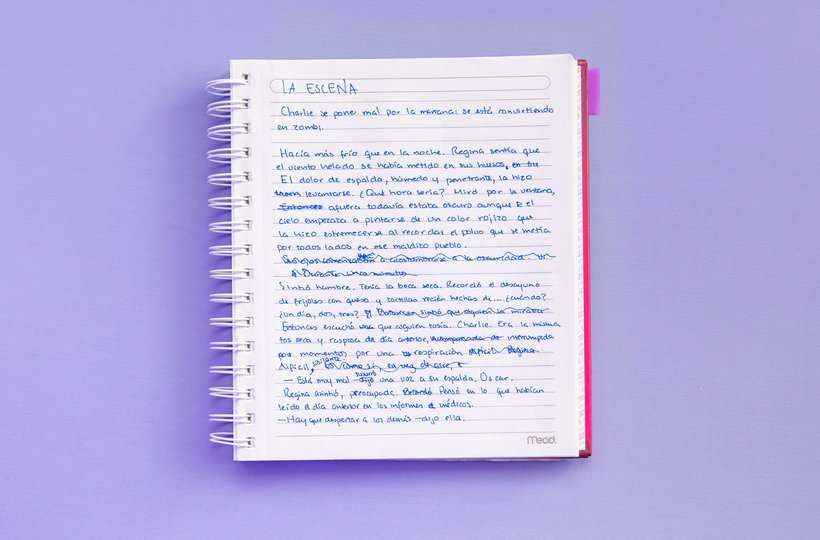 LA ESCENA
Charlie se pone mal por la mañana: se está convirtiendo
en zombi.
Hacía más frío que en la noche. Regina sentía que
el viento helado se había metido en sus huesos, en su
El dolor de espalda, húmedo y penetrante, la hizo
levantarse. ¿Qué hora sería? Miró por la ventana,
Entonces afuera todavía estaba oscuro aunque el
cielo empezaba a pintarse de un color rojizo que
la hizo estremecerse al recordar el polvo que se metía
por todos lados en ese maldito pueblo.
a acostumbrarse a la oscuridad.
Durante unos minutos
Sintió hambre. Tenía la boca seca. Recordó el desayuno
de frijoles con queso y tortillas recién hechas de... ¿cuándo?
¿un día, dos, tres? Entonces sintió que alguien la miraba
Entonces escuchó que alguien tosía. Charlie. Era la misma
tos seca y rasposa de día anterior, interrumpida
por momentos por una respiración difícil Regina
difícil, sibilante
— Está muy mal —dijo susurró una voz a su espalda, Oscar.
Regina asintió, preocupada. Recordó Pensó en lo que habían
leído el día anterior en los informes médicos.
—Hay que despertar a los demás —dijo ella.
Mead